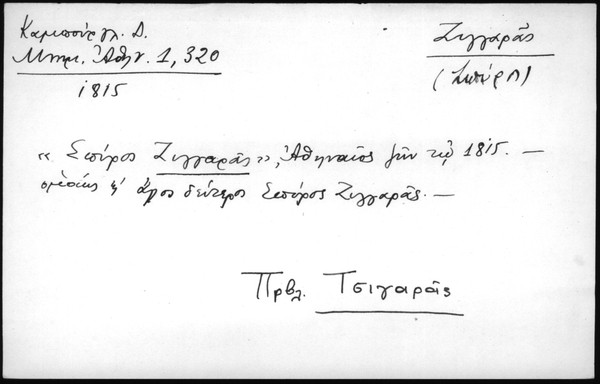 Καμπούρογλ. Δ.
Μνημ. Ἀθην. 1, 320
1815
Ζιγγαρᾶς
(Σπύρος)
« Σπύρος Ζιγγαρᾶς», Ἀθηναῖος ζῶν τῷ 1815. —
ἄλλος δεύτερος Σπύρος Ζιγγαρᾶς. —
Πρβλ. Τσιγαρᾶς